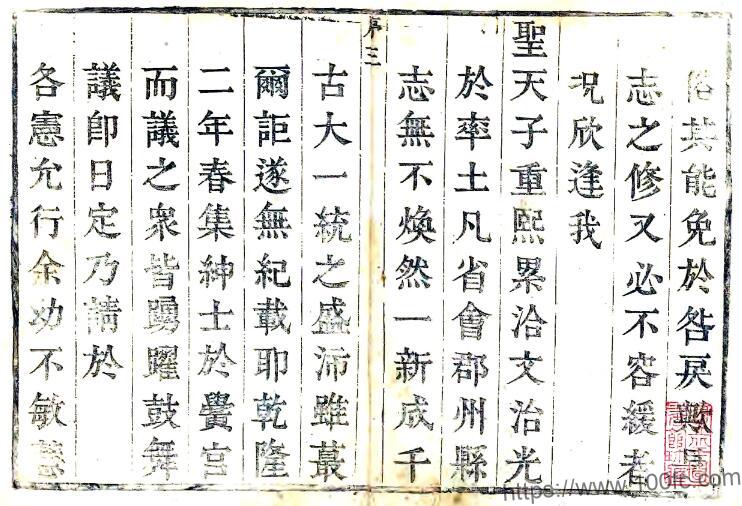 俗其能免於咎戾歟且
志之修又必不容緩者
况欣逢我
聖天子重熙累洽文治光
於率土凡省會郡州縣
志無不煥然一新成千
序三
古大一統之盛沛雖蕞
爾詎遂無紀載耶乾隆
二年春集紳士於黌宮
而議之衆皆踴躍鼓舞
議卽日定乃請於
各憲允行余劝不敏謹
https://www.100lc.com